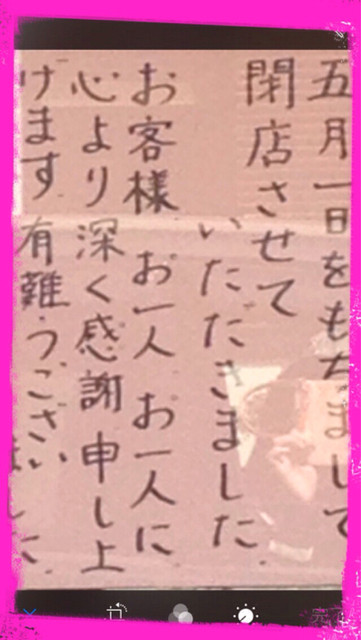 五月一日をもちまして
閉店させて
いただきました
お客様 お一人 お一人に
心より深く感謝申し上
げます 有難うございました
完了